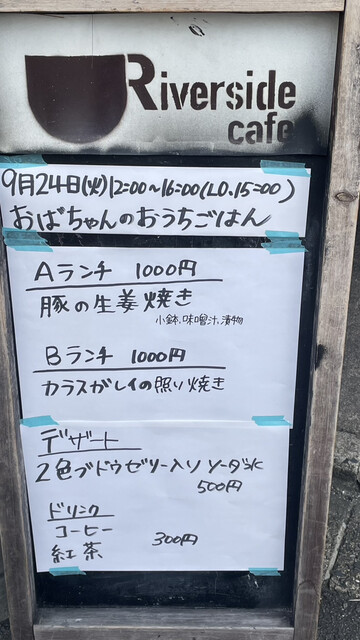 Riverside
cafe
9月24日(火)12:00〜16:00(LO.15:00)
おばちゃんのおうちごはん
Aランチ 1000円
豚の生姜焼き
小鉢.味噌汁.漬物
Bランチ 1000円
カラスガレイの照り焼き
デザート
2色ブドウゼリー入りソーダ氷
500円
ドリンク
コーヒー
紅茶 300円